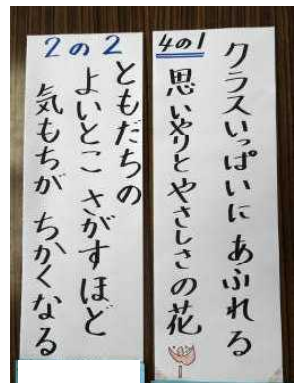 4の1
クラスいっぱいに あふれる
思いやりとやさしさの花
2の2
ともだちの
よいとこ さがすほど
気もちが ちかくなる